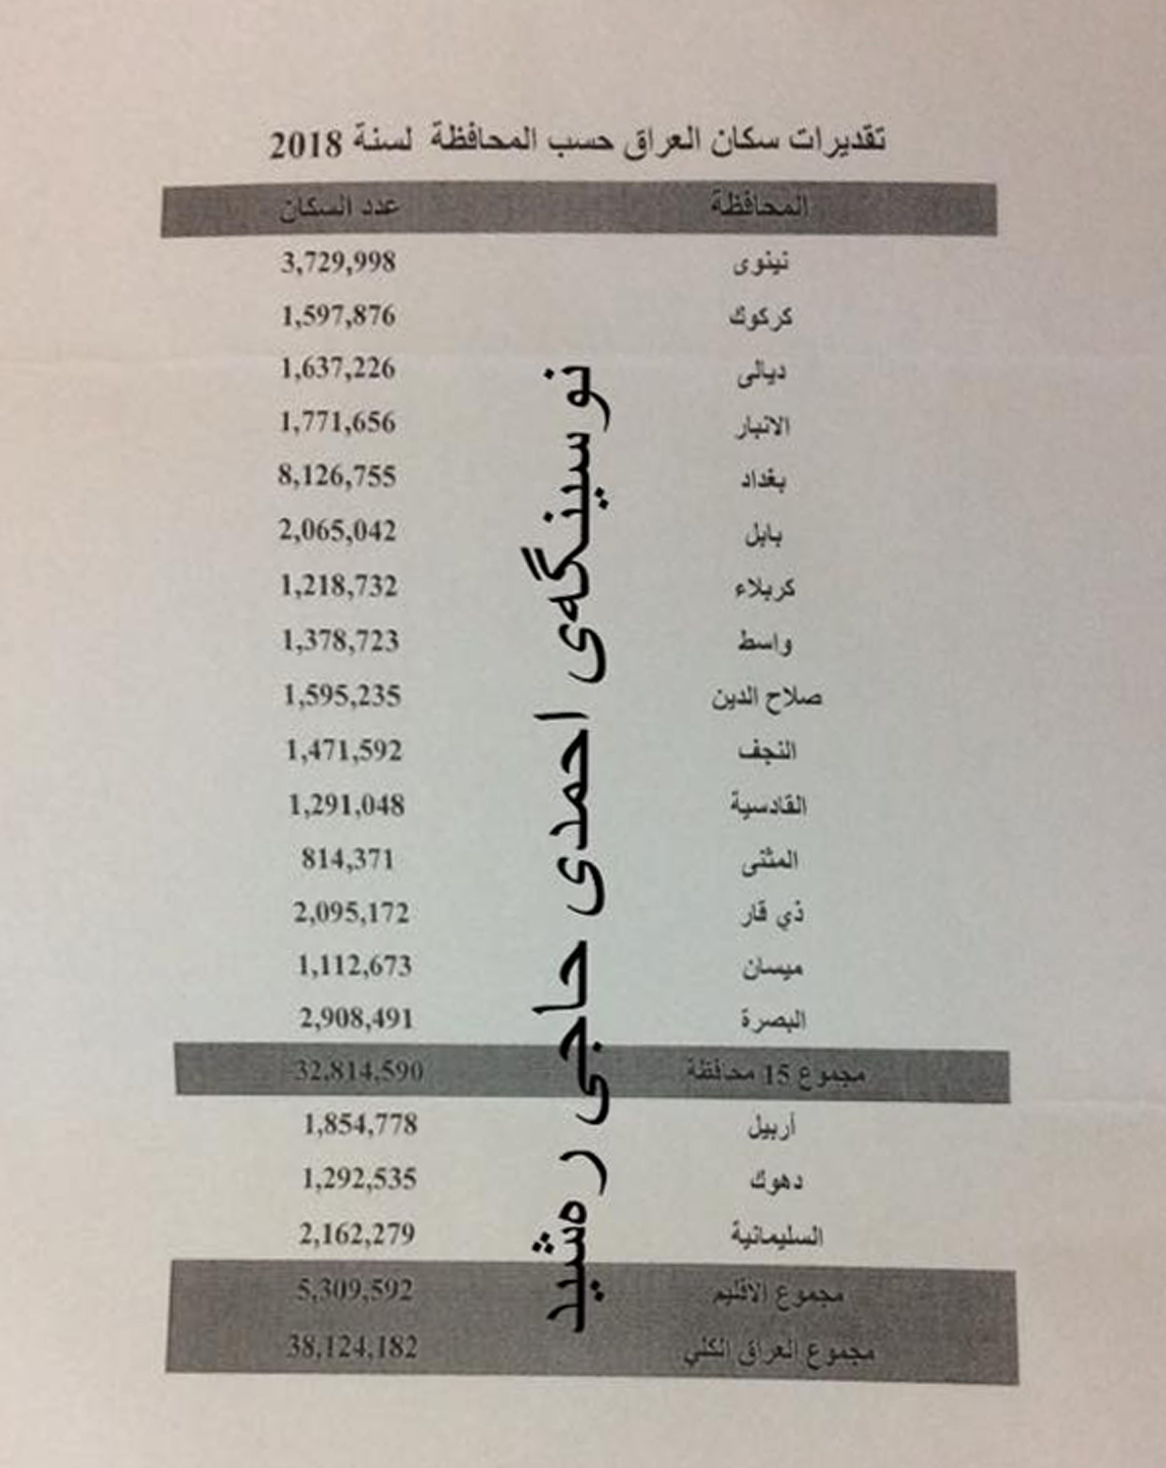 تقديرات سكان العراق حسب المحافظة لسنة 2018
المحافظة عدد السكان
نينوى 3,729,998
كركوك 1,597,876
ديالى 1,637,226
الانبار 1,771,656
بغداد 8,126,755
بابل 2,065,042
كربلاء 1,218,732
واسط 1,378,723
صلاح الدين 1,595,235
النجف 1,471,592
القادسية 1,291,048
المثنى 814,371
ذي قار 2,095,172
ميسان 1,112,673
البصرة 2,908,491
مجموع 15 محافظة 32,814,590
أربيل 1,854,778
دهوك 1,292,535
السليمانية 2,162,279
مجموع الاقليم 5,309,592
مجموع العراق الكلي 38,124,182
نوسینگەی احمدی حاجی رەشید